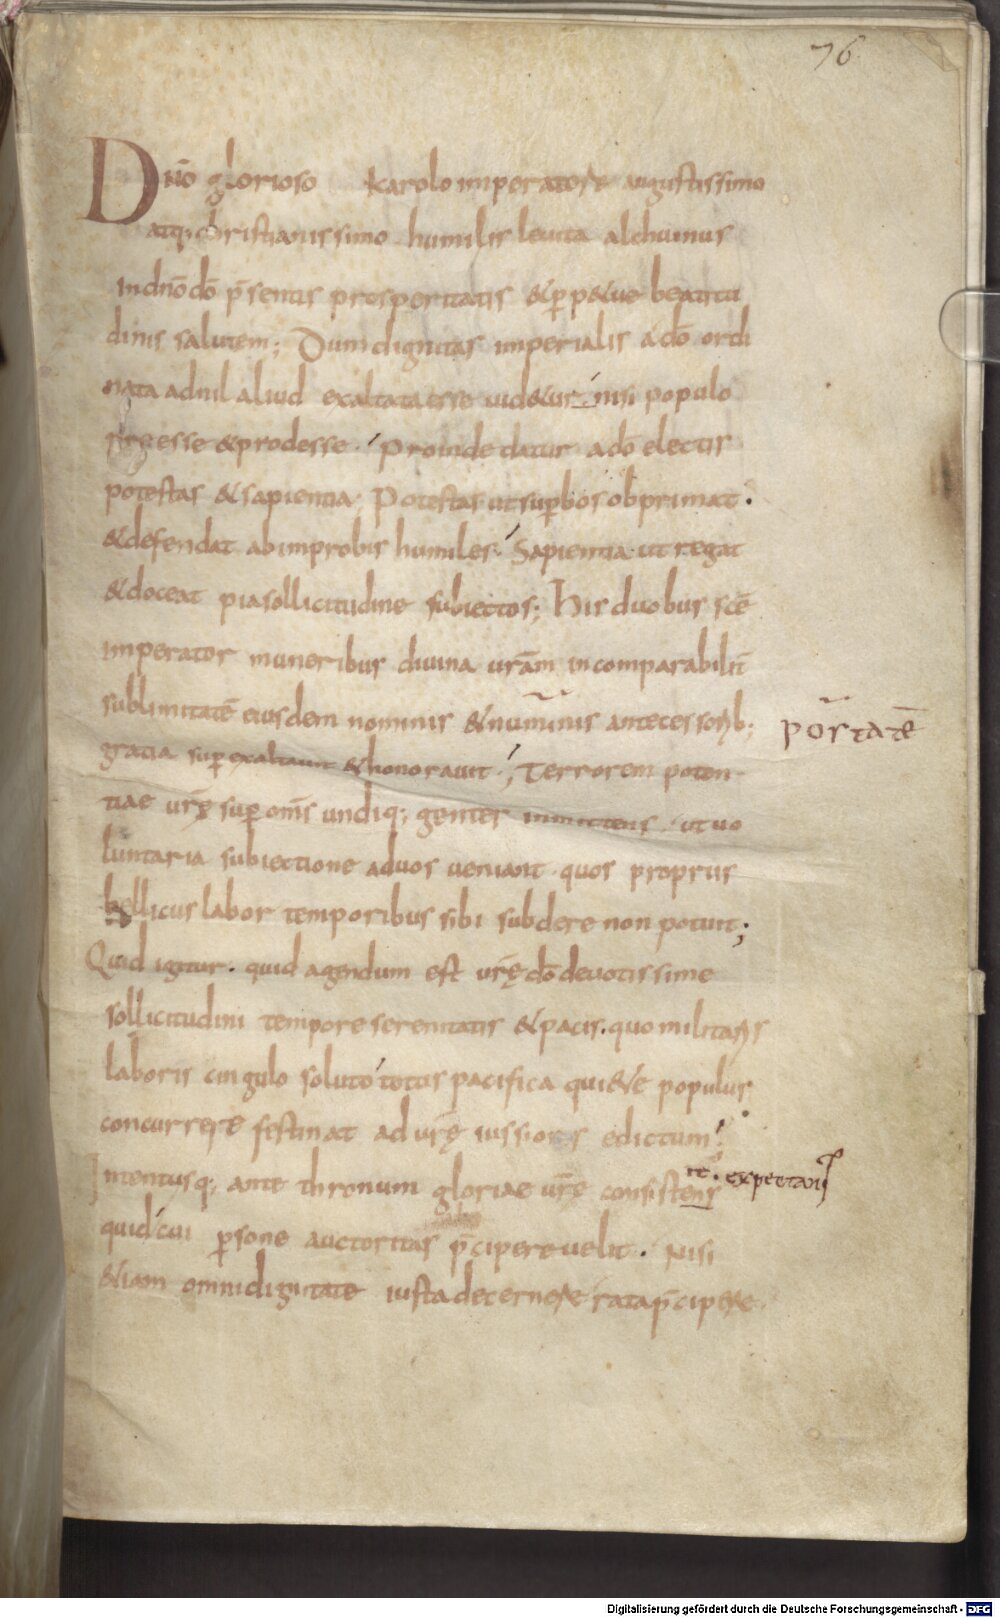 76
Dño glorioso karolo imperatore augustissimo
atq; christianissimo humilis leuita alchuinus
in dñodō p̄sentis prosperitatis & p̱p&ue beatitu
dinis salutem; Dum dignitas imperialis ádō ordi
nata ad nil aliud exaltata esse uid&ur nisi populo
preesse & prodesse. Proinde datur adō electis
potestas & sapientia; Potestas ut sup̱bos obprimat.
& defendat ab improbis humiles. Sapientia ut regat
& doceat pia sollicitudine subiectos; His duobus scē
imperator muneribus diuina urām incomparabilit̄
sublimitatē eiusdem nominis & numinis antecessorib;
por̄tatē
gratia sup̱exaltauit & honorauit; Terrorem poten
tiae urę̄ sup̱ omīs undiq; gentes inmittens. ut uo
luntaria subiectione ad uos ueniant quos prioriis
bellicus labor temporibus sibi subdere non potuit;
Quid igitur. quid agendum est urę̄ dō deuotissime
sollicitudini tempore serenitatis & pacis. quo militaris
laboris cingulo soluto totus pacifica qui&e populus
concurrere festinat ad urę̄ iussionis edictum;
Intentusq; ante thronum gloriae urę̄ consistens
expectans
quid cui p̱sone auctoritas p̄cipere uelit. Nisi
&iam omni dignitate iusta decernere rata p̄cipere
Digitalisierung gefördert durch die Deutsche Forschungsgemeinschaft - DFG